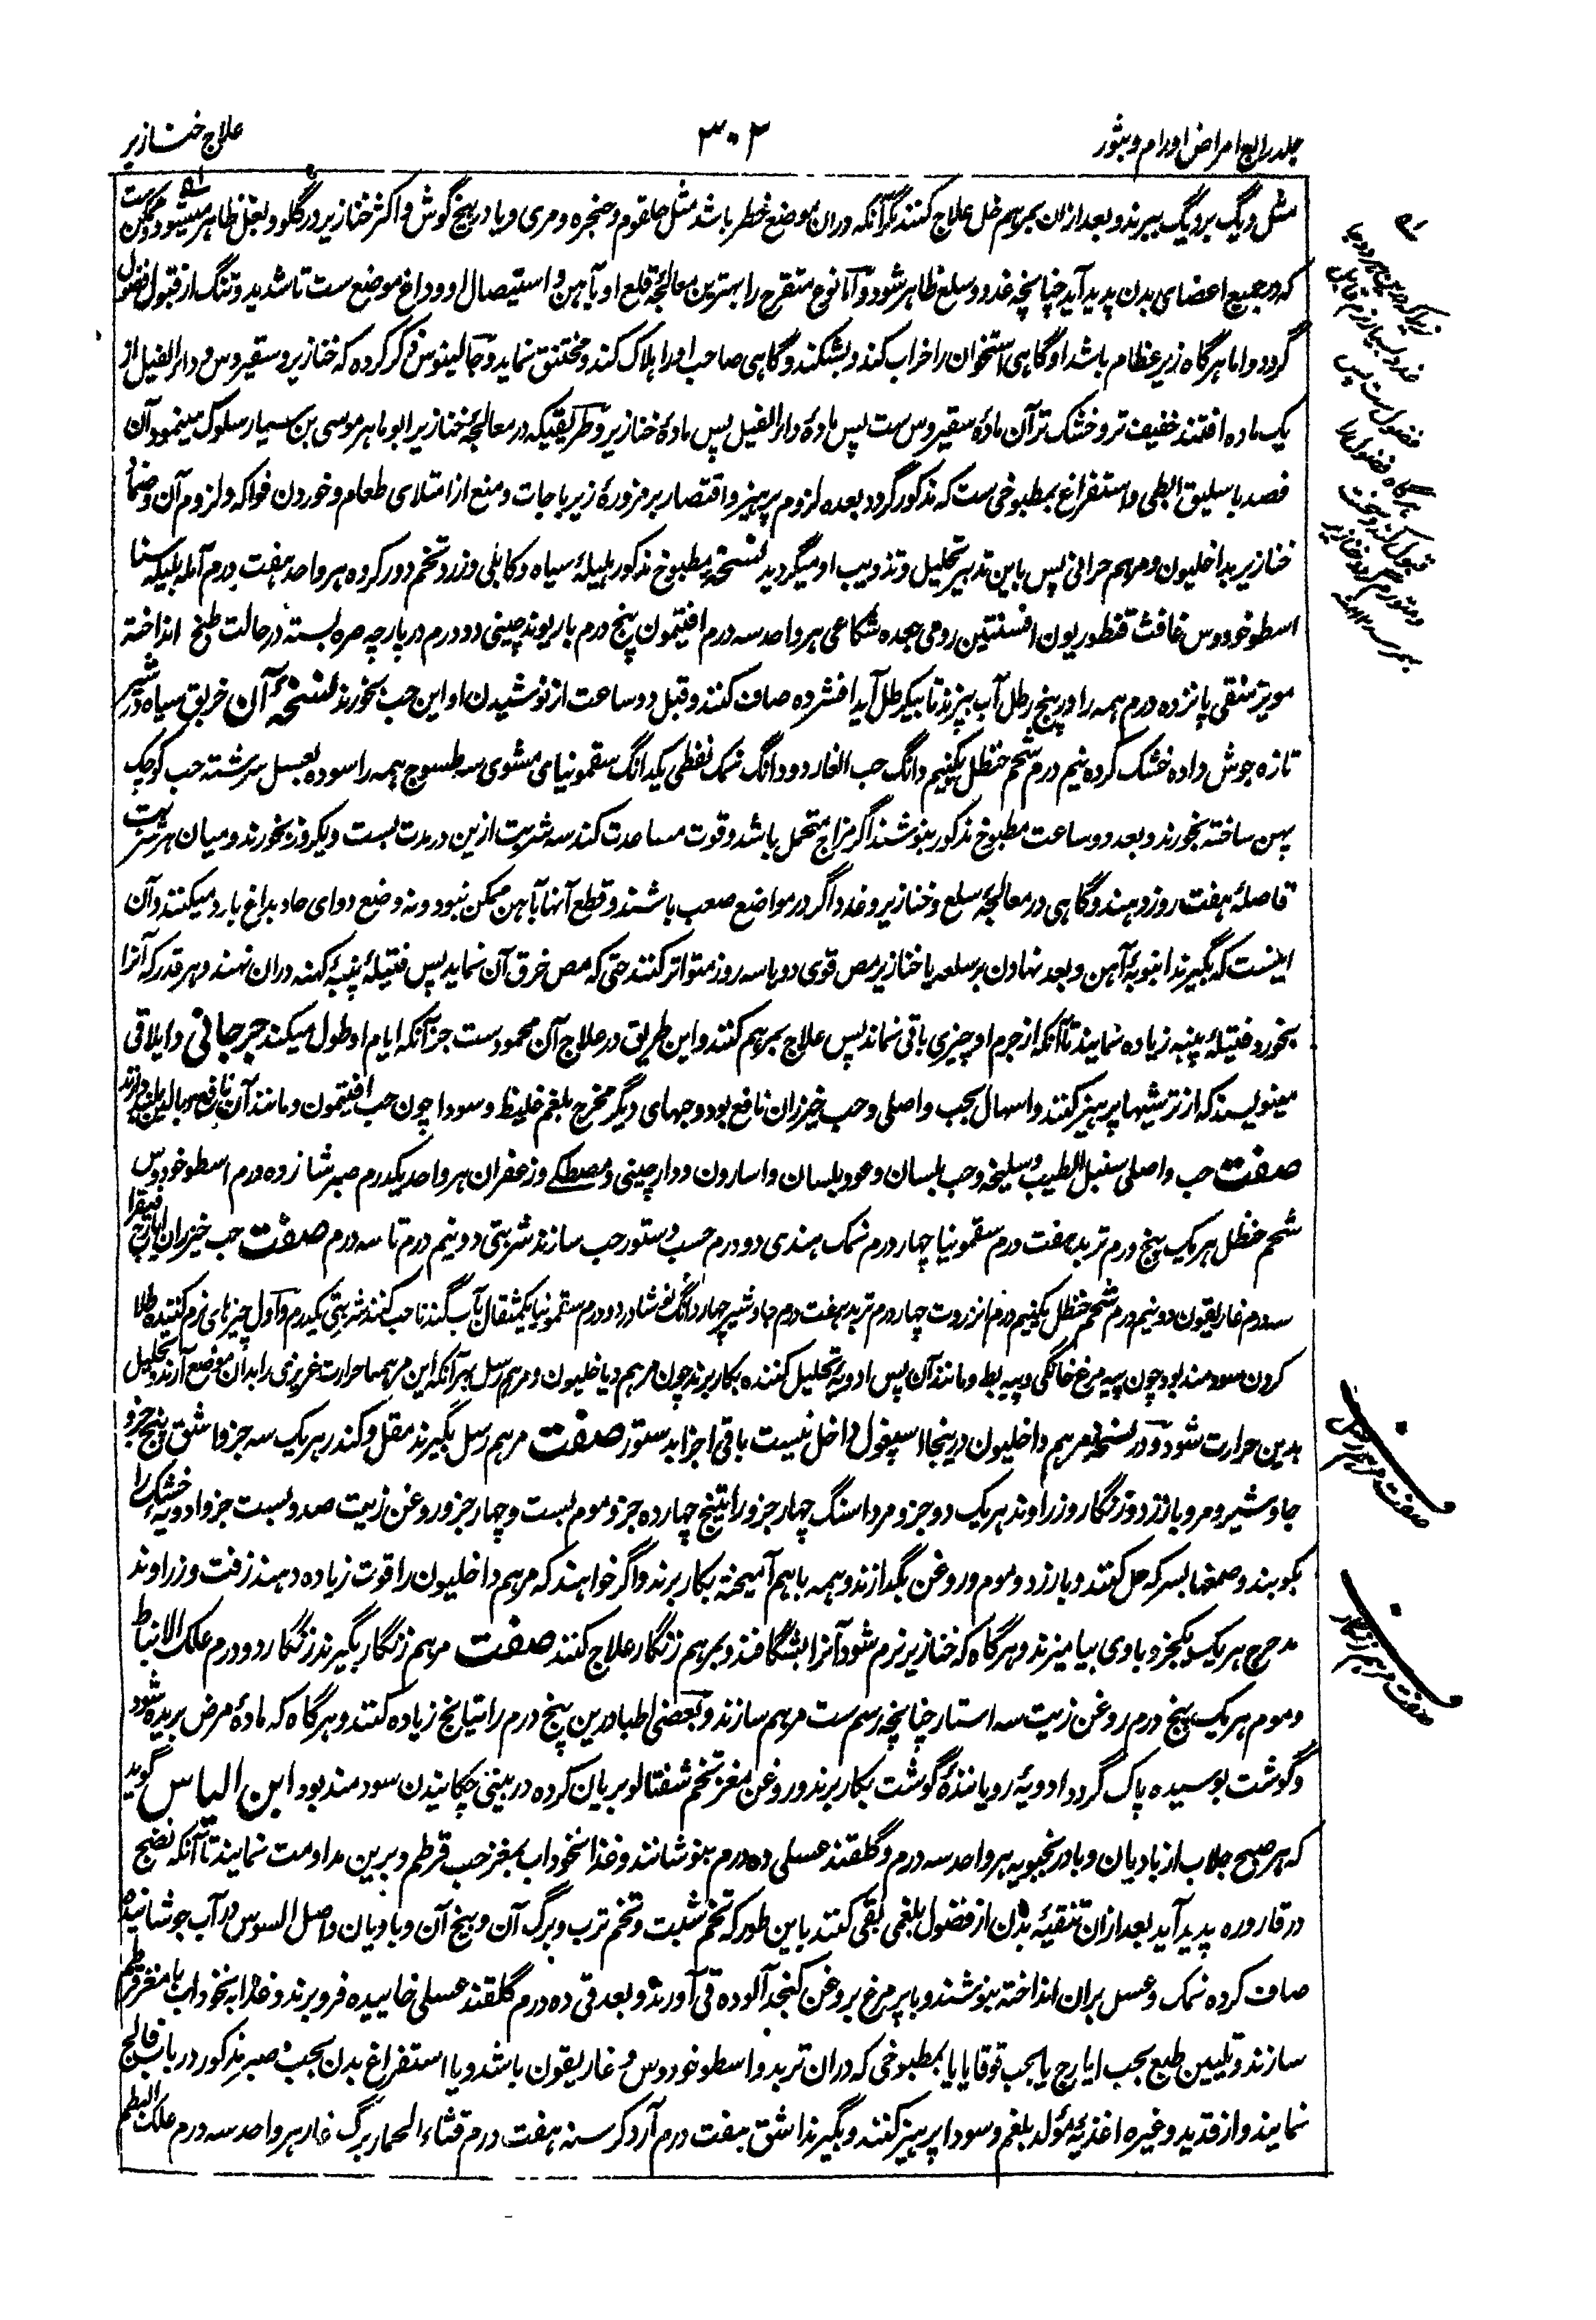 جلد رابع امراض اورام و بثور
۳۰۲
علاج خنازیر
مثل دیگ بردیگ ببرند و بعد ازان بمرهم خل علاج کنند مگر آنکه دران موضع خطر باشد مثل حلقوم و حنجره و مری و یا در بیخ گوش و اکثر خنازیر در گلو و بغل ظاهر میشود و ممکن ست
که در جمیع اعضای بدن پدید آید چنانچه غدد و سلع ظاهر شود و اما نوع متقرح را بهترین معالجه قلع او بآهن و استیصال او و داغ موضع ست تا شدید و تنگ از قبول فضول
گردد و اما هرگاه زیر عظام باشد او گاهی استخوان را خراب کند و بشکند و گاهی صاحب او را هلاک کند و مختنق نماید و جالینوس ذکر کرده که خنازیر و سقیروس و دار الفیل از
یک ماده افتند خفیف تر و خشک تر آن مادهٔ سقیروس ست پس مادهٔ دار الفیل پس مادهٔ خنازیر و طریقیکه در معالجهٔ خنازیر ابو ماهر موسی بن سیار سلوک مینمود آن
فصد باسلیق ابطی و استفراغ بمطبوخی ست که مذکور گردد بعده لزوم پرهیز و اقتصار بر مزورهٔ زیرباجات و منع از امتلای طعام و خوردن فواکه و لزوم آن و ضماد
خنازیر بداخلیون و مرهم حرانی پس باین تدبیر تحلیل و تذویب او میگردید نسخهٔ مطبوخ مذکور هلیلهٔ سیاه و کابلی و زرد تخم دور کرده هر واحد هفت درم آمله بلیله سنا
اسطوخودوس غافث قنطوریون افسنتین رومی جعده شکاعی هر واحد سه درم افتیمون پنج درم باریوند چینی دو درم در پارچه صره بسته در حالت طبخ انداخته
مویز منقی پانزده درم همه را در پنج رطل آب بپزند تا بیکرطل آید افشرده صاف کنند و قبل دو ساعت از نوشیدن او این حب بخورند نسخهٔ آن خربق سیاه در شیر
تازه جوش داده خشک کرده نیم درم شحم حنظل یکنیم دانگ حب الغار دو دانگ نمک نفطی یکدانگ سقمونیای مشوی سه طسوج همه را سوده بعسل سرشته حب کوچک
پهن ساخته بخورند و بعد دو ساعت مطبوخ مذکور بنوشند اگر مزاج متحمل باشد و قوت مساعدت کند سه شربت ازین در مدت بست و یکروز بخورند و میان هر شربت
فاصلهٔ هفت روز دهند و گاهی در معالجهٔ سلع و خنازیر و غدد اگر در مواضع صعب باشند و قطع آنها بآهن ممکن نبود و نه وضع دوای حاد بداغ بارد میکنند و آن
اینست که بگیرند انبوبهٔ آهن و بعد نهادن بر سلعه یا خنازیر مص قوی دو یا سه روز متواتر کنند حتی که مص خرق آن نماید پس فتیلهٔ پنبهٔ کهنه دران نهند و هر قدر که آنرا
بخورد فتیلهٔ پنبه زیاده نمایند تا آنکه از جرم او چیزی باقی نماند پس علاج بمرهم کنند و این طریق در علاج آن محمود ست جز آنکه ایام او طول میکند جرجانی و ایلاقی
مینویسند که از ترشیها پرهیز کنند و اسهال بحب واصلی و حب خیزران نافع بود و حبهای دیگر مخرج بلغم غلیظ و سودا چون حب افتیمون و مانند آن نافع و بالین بلند دارند
صفت حب واصلی سنبل الطیب و سلیخه و حب بلسان و عود بلسان و اسارون و دارچینی و مصطکی و زعفران هر واحد یکدرم صبر شانزده درم اسطوخودوس
شحم حنظل هر یک پنج درم تربد هفت درم سقمونیا چهار درم نمک هندی دو درم حسب دستور حب سازند شربتی دو نیم درم تا سه درم صفت حب خیزران ایارج فیقرا
سه درم غاریقون دو نیم درم شحم حنظل یکنیم درم انزروت چهار درم تربد هفت درم جاوشیر چهار دانگ نوشادر دو درم سقمونیا یکمثقال بآب گندنا حب کنند شربتی یکدرم و اول چیزهای نرم کننده طلا
کردن سودمند بود چون پیه مرغ خانگی و پیه بط و مانند آن پس ادویهٔ تحلیل کننده بکار برند چون مرهم دیاخلیون و مرهم رسل بهر آنکه این مرهمها حرارت غریزی را بدان موضع آرند و تحلیل
بدین حرارت شود و در نسخهٔ مرهم داخلیون درینجا اسپغول داخل نیست باقی اجزا بدستور صفت مرهم رسل بگیرند مقل و کندر هر یک سه جزو اشق پنج جزو
جاوشیر و مر و بارزد و زنگار و زراوند هر یک دو جزو مرداسنگ چهار جزو راتینج چهارده جزو موم بست و چهار جزو روغن زیت صد و بست جزو ادویه خشک را
بکوبند و صمغها بسرکه حل کنند و بارزد و موم و روغن بگدازند و همه باهم آمیخته بکار برند و اگر خواهند که مرهم داخلیون را قوت زیاده دهند زفت و زراوند
مدحرج هر یک یکجزو باوی بیامیزند و هرگاه که خنازیر نرم شود آنرا بشگافند و بمرهم زنگار علاج کنند صفت مرهم زنگار بگیرند زنگار دو درم علک الانباط
و موم هر یک پنج درم روغن زیت سه استار چنانچه رسم ست مرهم سازند و بعضی اطبا درین پنج درم راتیانج زیاده کنند و هرگاه که مادهٔ مرض بریده شود
و گوشت بوسیده پاک گردد ادویهٔ رویانندهٔ گوشت بکار برند و روغن مغز تخم شفتالو بریان کرده در بینی چکانیدن سودمند بود ابن الیاس گوید
که هر صبح جلاب از بادیان و بادرنجبویه هر واحد سه درم و گلقند عسلی ده درم بنوشانند و غذا نخوداب بمغز حب قرطم و برین مداومت نمایند تا آنکه نضج
در قاروره پدید آید بعد ازان تنقیهٔ بدن از فضول بلغمی بقی کنند باین طور که تخم شبت و تخم ترب و برگ آن و بیخ آن و بادیان و اصل السوس در آب جوشانیده
صاف کرده نمک و عسل بران انداخته بنوشند و باپر مرغ بروغن کنجد آلوده قی آورند و بعد قی ده درم گلقند عسلی خاییده فرو برند و غذا به نخوداب با مغز قرطم
سازند و تلیین طبع بحب ایارج یا بحب قوقایا یا بمطبوخی که دران تربد و اسطوخودوس و غاریقون باشد و یا استفراغ بدن بحب صبر مذکور در باب فالج
نمایند و از قدید و غیره اغذیهٔ مولد بلغم و سودا پرهیز کنند و بگیرند اشق هفت درم آرد کرسنه هفت درم قثاء الحمار برگ غار هر واحد سه درم علک البطم
صفت مرهم رسل
صفت مرهم زنگار